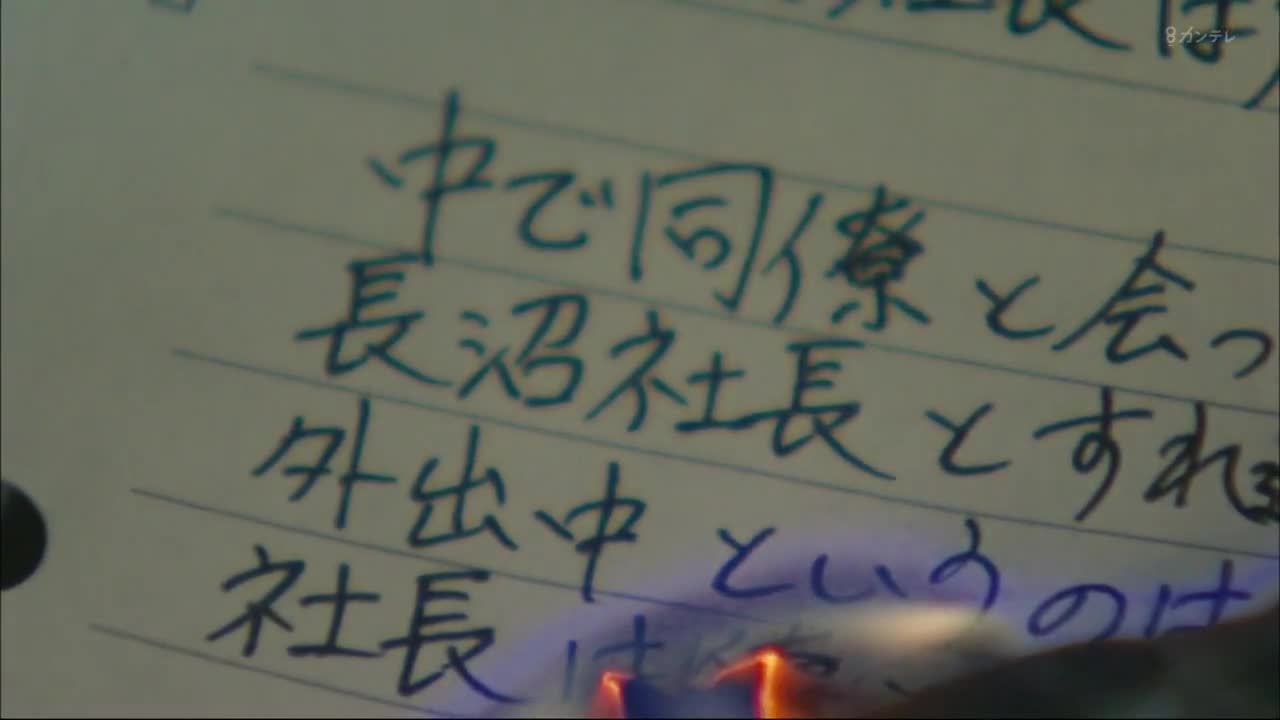 8カンテレ
社長は
中で同僚と会っ
長沼社長とすれ
外出中というのは
社長は